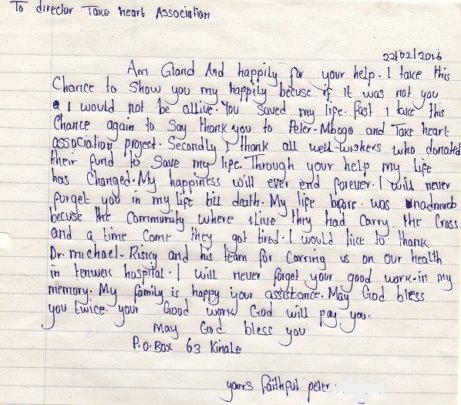 To director Take heart Association
22/02/2016
Am Gland And happily for your help. I take this
Chance to Show you my happily becuse if it was not you
I would not be allive. You saved my life. Fast I take this
Chance again to Say thank you to Peter. Mbogo and Take heart
association project. Secondly I thank all well-wishers who donated
their fund to Save my life. Through your help my life
has Changed. My happiness will ever end forever. I will never
forget you in my life till death. My life before was
becuse the Community where I live they had Carry the Cross
and a time Come they got tired. I would like to thank
Dr. michael. and his team for Carring us on our health
in tenwek hospital. I will never forget your good work in my
memory. My family is happy your assistance. May God bless
you twice. your Good work God will pay you.
May God bless you
P.O. Box 63 Kinale
yours faithful peter.